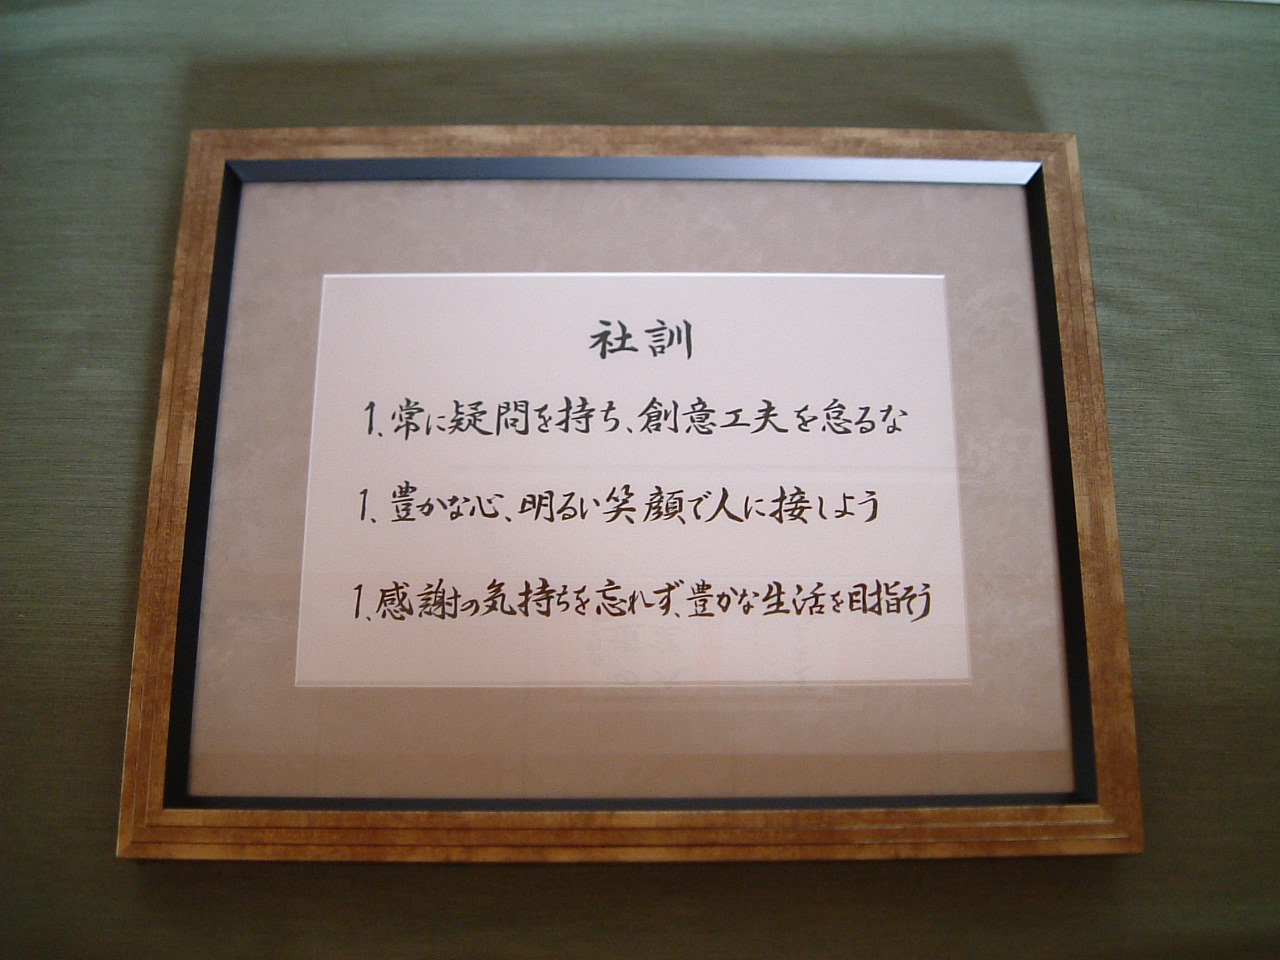 社訓
1、常に疑問を持ち、創意工夫を怠るな
1、豊かな心、明るい笑顔で人に接しよう
1、感謝の気持ちを忘れず、豊かな生活を目指そう